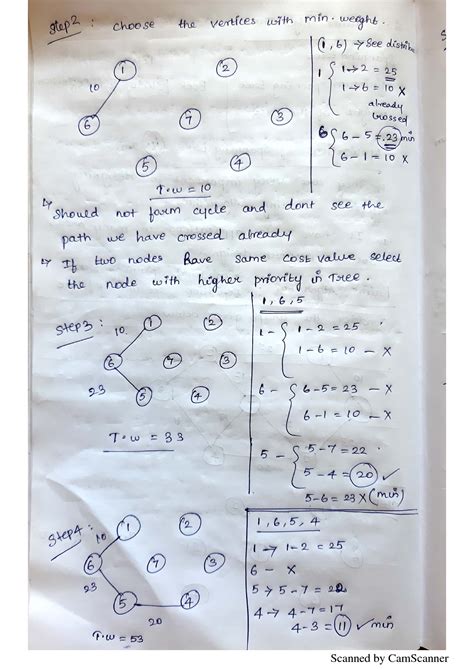 Step2 : choose the vertices with min. weight.
(1, 6) → See distibu
1
2
1 { 1→2 = 25
10
1→6 = 10 X
already
crossed
6
7
3
6 { 6-5 = 23 min
5
4
6-1 = 10 X
T.w = 10
↳ Should not form cycle and dont see the
path we have crossed already
↳ If two nodes have same cost value select
the node with higher priority in Tree.
1, 6, 5
Step3 :
10
1
2
1 - { 1-2 = 25
1-6 = 10 - X
6
7
3
23
5
4
6 - { 6-5 = 23 - X
6-1 = 10 - X
T.w = 33
5 - { 5-7 = 22
5-4 = 20 ✓
5-6 = 23 X (min)
Step4 :
10
1
2
1, 6, 5, 4
1 → 1-2 = 25
6
7
3
6 - X
23
5 → 5-7 = 22
5
4
4 → 4-7 = 17
20
4-3 = 11 ✓ min
T.w = 53
Scanned by CamScanner